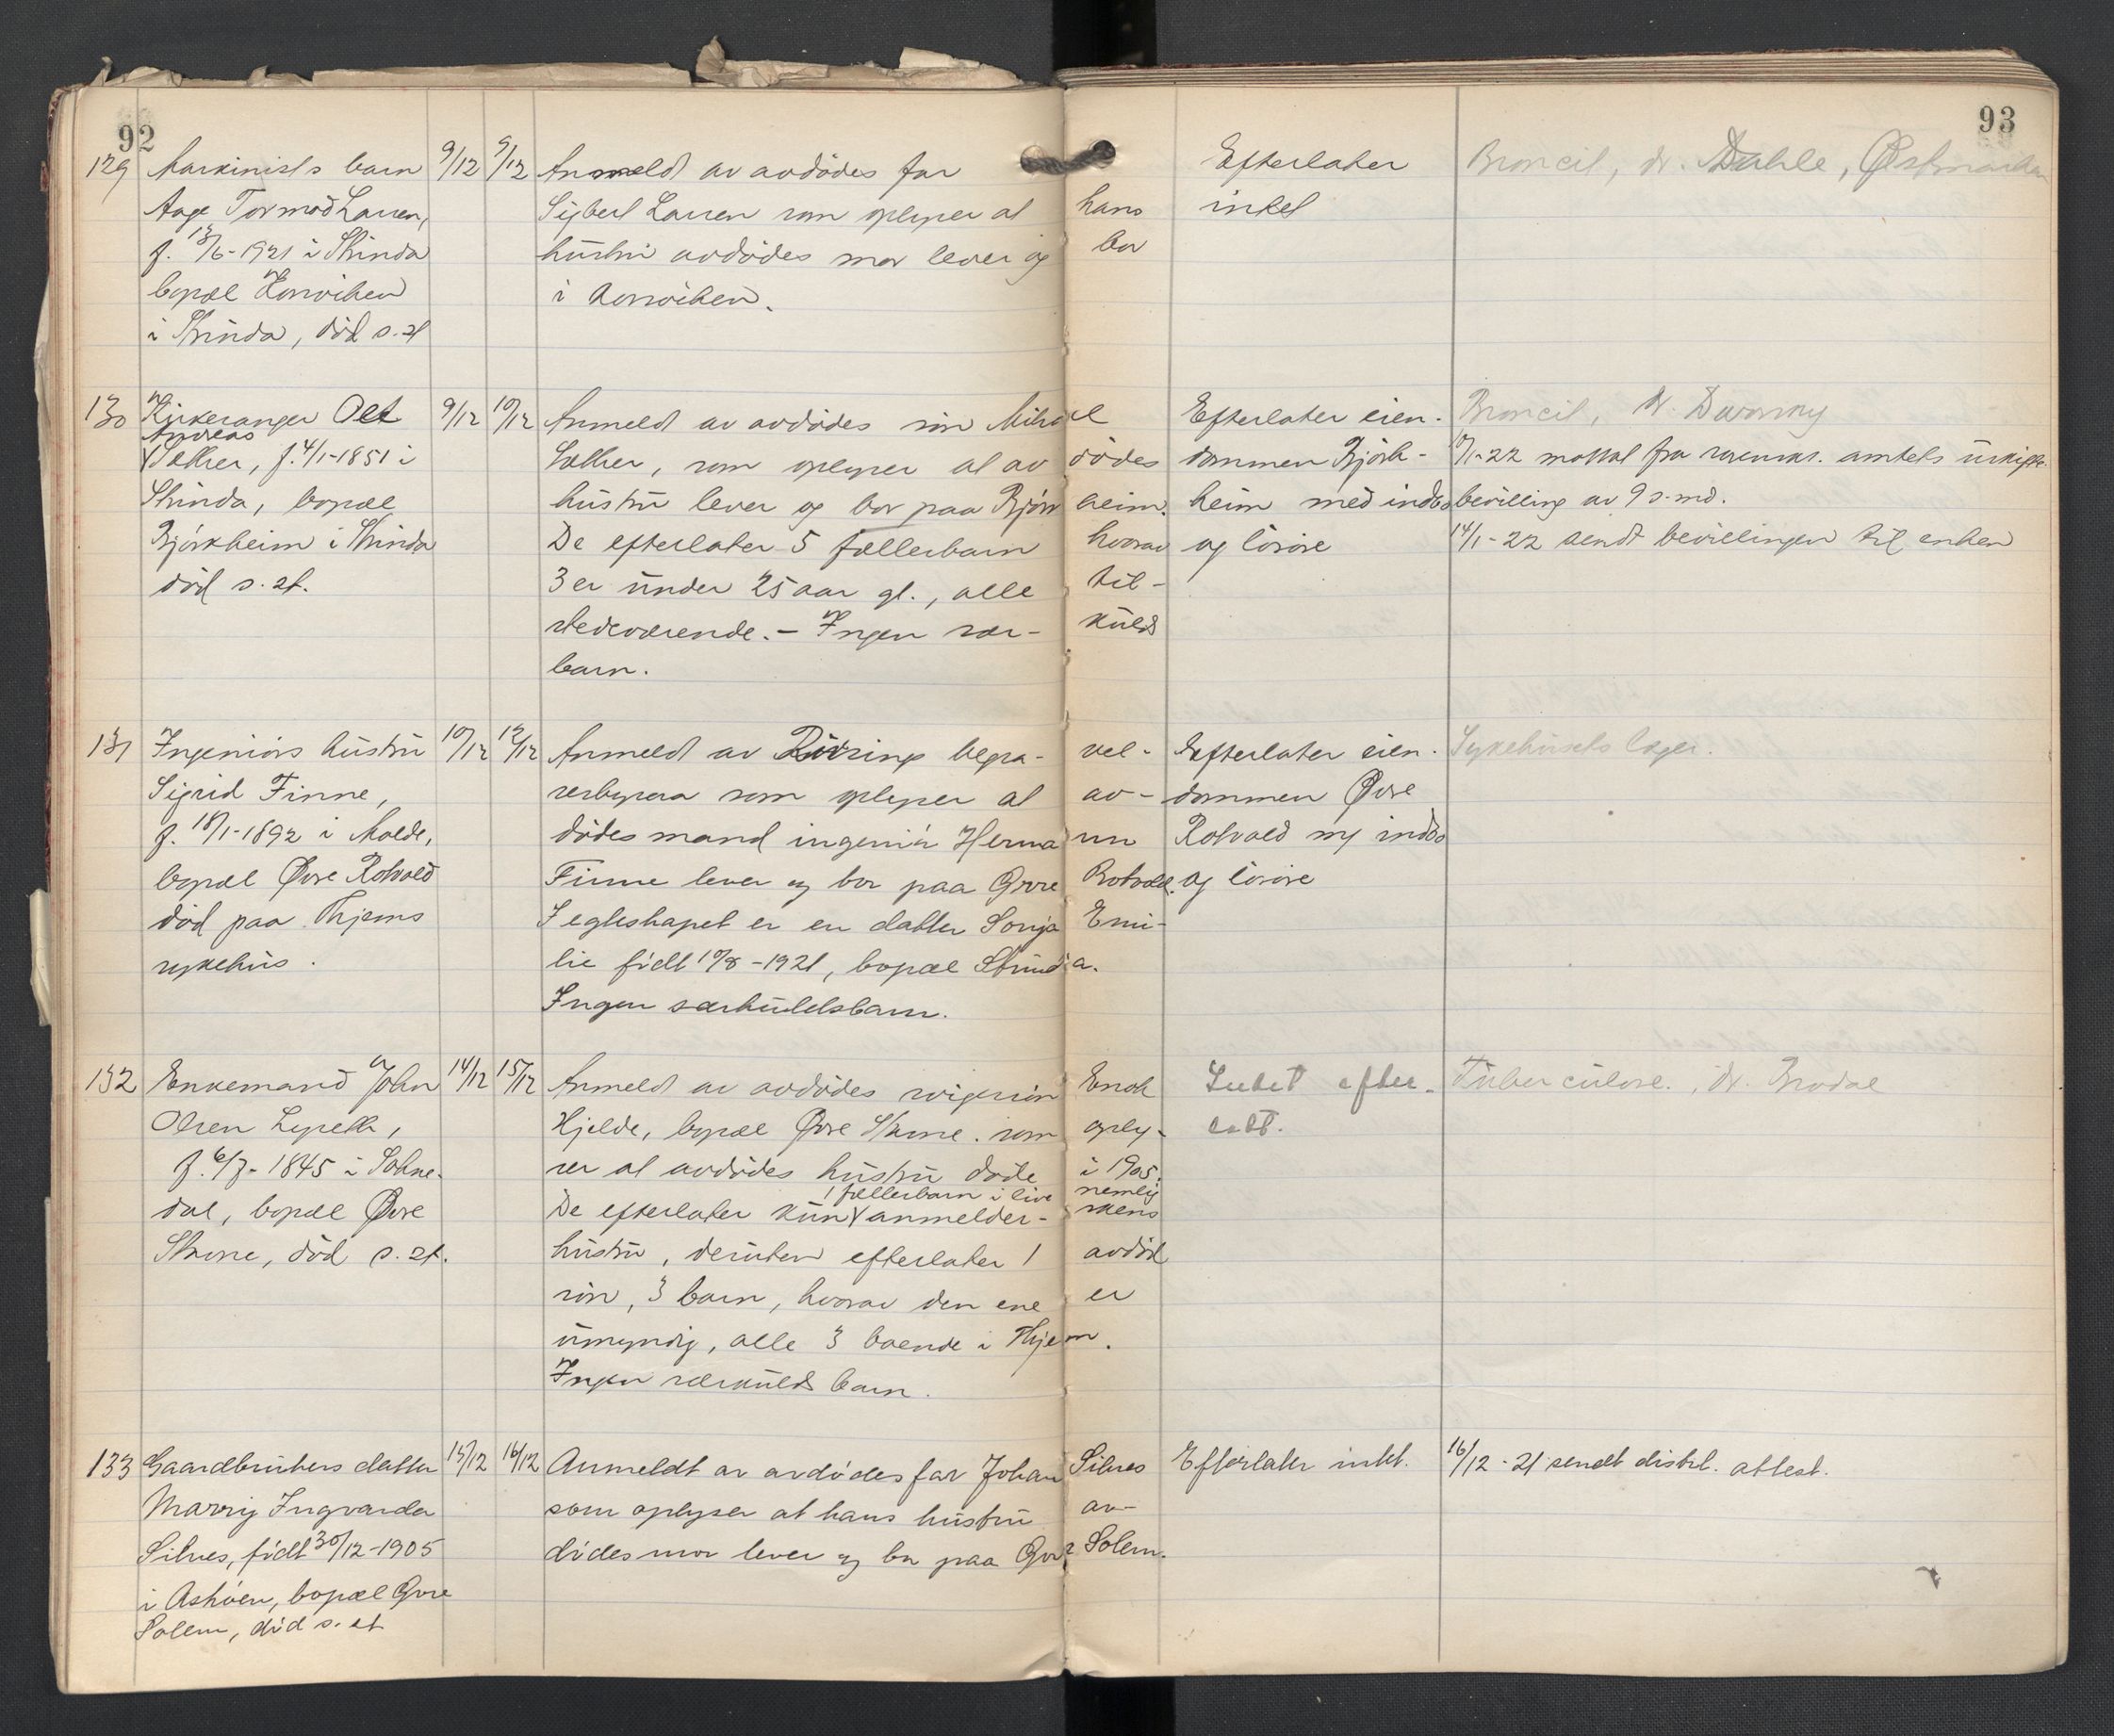 92
93
129 Maskinists barn 9/12 9/12 Anmeldt av avdødes far Efterlater Broncit, dr. Dahle, Østmarken
Aage Tormod Larsen, Sigbert Larsen som oplyser at hans intet
f. 13/6-1921 i Strinda hustru avdødes mor lever og bor
bopæl Korsviken i Korsviken.
i Strinda, død s. st
130 Kirkesanger Olet 9/12 10/12 Anmeldt av avdødes søn Mikael Efterlater eien- Broncit, dr.
Andreas
Sæther, f. 4/1-1851 i Sæther, som oplyser at avdødes dommen Björk- 10/1-22 mottat fra sorenskr. amtets uskifte-
Strinda, bopæl hustru lever og bor paa Björkheim. heim med indbo bevilling av 9 s. md.
Björkheim i Strinda De efterlater 5 fællesbarn hvorav og løsøre 14/1-22 sendt bevillingen til enken
død s. st. 3 er under 25 aar gl., alle til-
stedeværende. - Ingen særkulds
barn.
131 Ingeniørs hustru 10/12 12/12 Anmeldt av begravel- Efterlater eien- Sykehusets læger.
Sigrid Finne, sesbyraa som oplyser at av- dommen Øvre
f. 18/1-1892 i Molde, dødes mand ingeniør Hermann Rotvold m/ indbo
bopæl Øvre Rotvold Finne lever og bor paa Øvre Rotvold. og løsøre
død paa Thjems I egteskapet er en datter Sonja Emi-
sykehus. lie født 10/8-1921, bopæl Strinda.
Ingen særkuldsbarn.
132 Enkemand John 14/12 15/12 Anmeldt av avdødes svigersøn Enok Intet efter- Tuberculose., dr. Brodal
Olsen Lyseth, Hjelde, bopæl Øvre Skine. som oply- latt.
f. 6/7-1845 i Sokne- ser at avdødes hustru døde i 1905.
1 fællesbarn i live nemlig
dal, bopæl Øvre De efterlater kun anmelder- skens
død s. st. hustru, desuten efterlater 1 avdød
søn, 3 barn, hvorav den ene er
umyndig, alle 3 boende i Thjem.
Ingen særkulds barn.
133 Gaardbrukers datter 15/12 16/12 Anmeldt av avdødes far Johan Silnes Efterlater intet. 16/12-21 sendt distrl. attest.
Ingvarda som oplyser at hans hustru av-
Silnes, født 30/12-1905 dødes mor lever og bor paa Øvre Solem.
i Ashøen, bopæl Øvre
Solem, død s. st